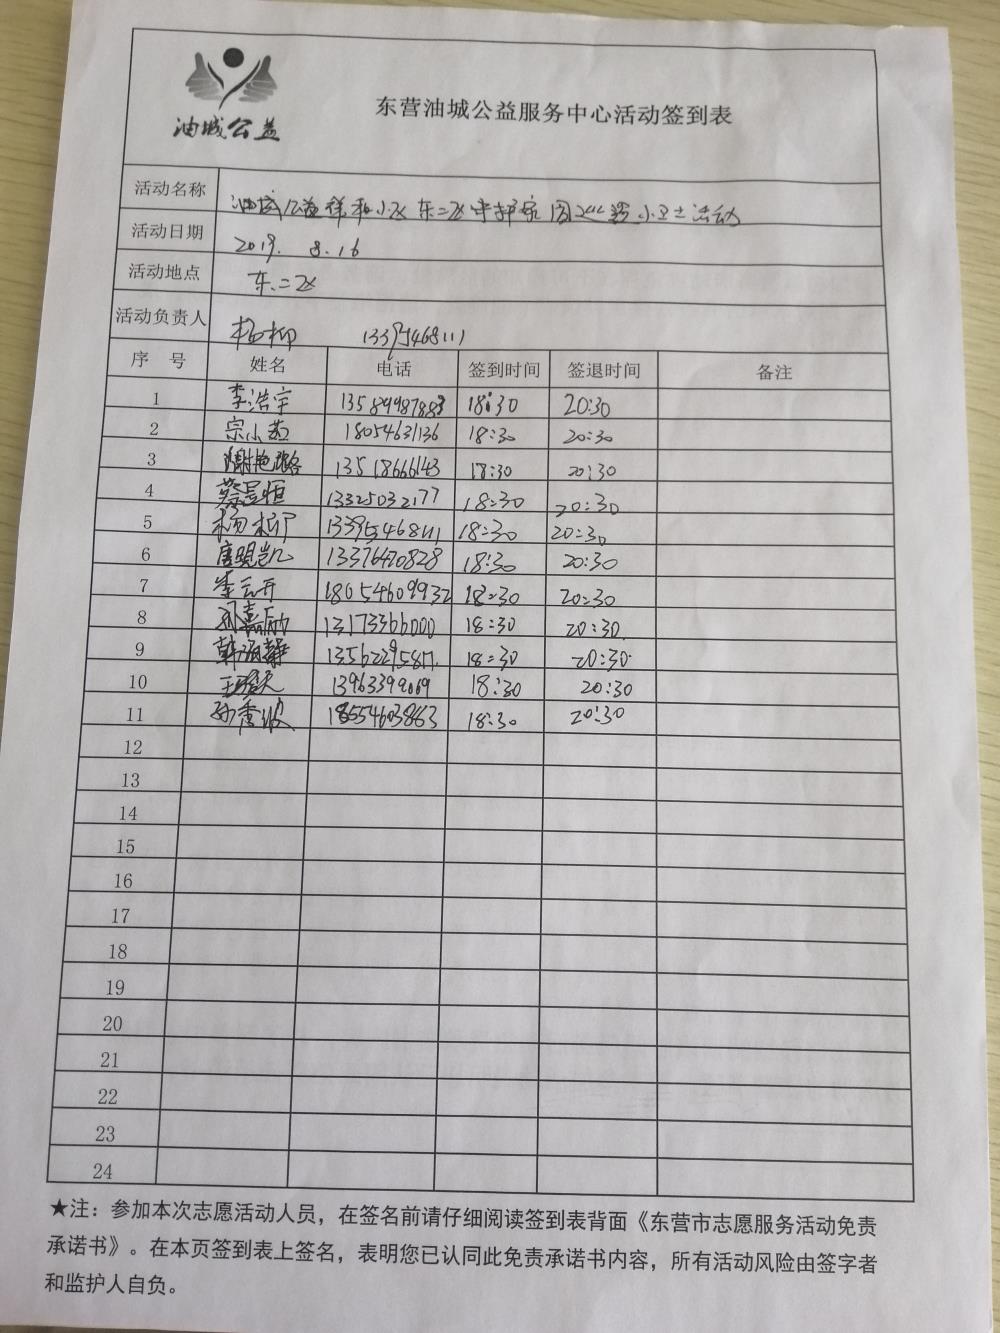 油城公益
东营油城公益服务中心活动签到表
活动名称 油城公益祥和小区东二区 小卫士活动
活动日期 2019. 8.16
活动地点 东二区
活动负责人 杨柳 13395468111
序 号 姓名 电话 签到时间 签退时间 备注
1 李浩宇 13589987883 18:30 20:30
2 宗小茜 18054631136 18:30 20:30
3 13518666143 18:30 20:30
4 蔡昱恒 13325032177 18:30 20:30
5 杨柳 13395468111 18:30 20:30
6 唐明凯 13376470828 18:30 20:30
7 李云开 18054609932 18:30 20:30
8 孙嘉励 13173366000 18:30 20:30
9 18:30 20:30
10 13963399069 18:30 20:30
11 孙秀波 18554603863 18:30 20:30
12
13
14
15
16
17
18
19
20
21
22
23
24
★注：参加本次志愿活动人员，在签名前请仔细阅读签到表背面《东营市志愿服务活动免责
承诺书》。在本页签到表上签名，表明您已认同此免责承诺书内容，所有活动风险由签字者
和监护人自负。